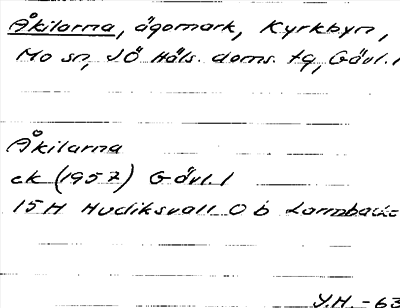 Åkilarna, ägomark, Kyrkbyn,
Mo sn, SÖ Häls. doms. tg, Gävl. l
Åkilarna
ek (1957) Gävl. l
15H Hudiksvall 0 b Larmbacke
Y.H. -63